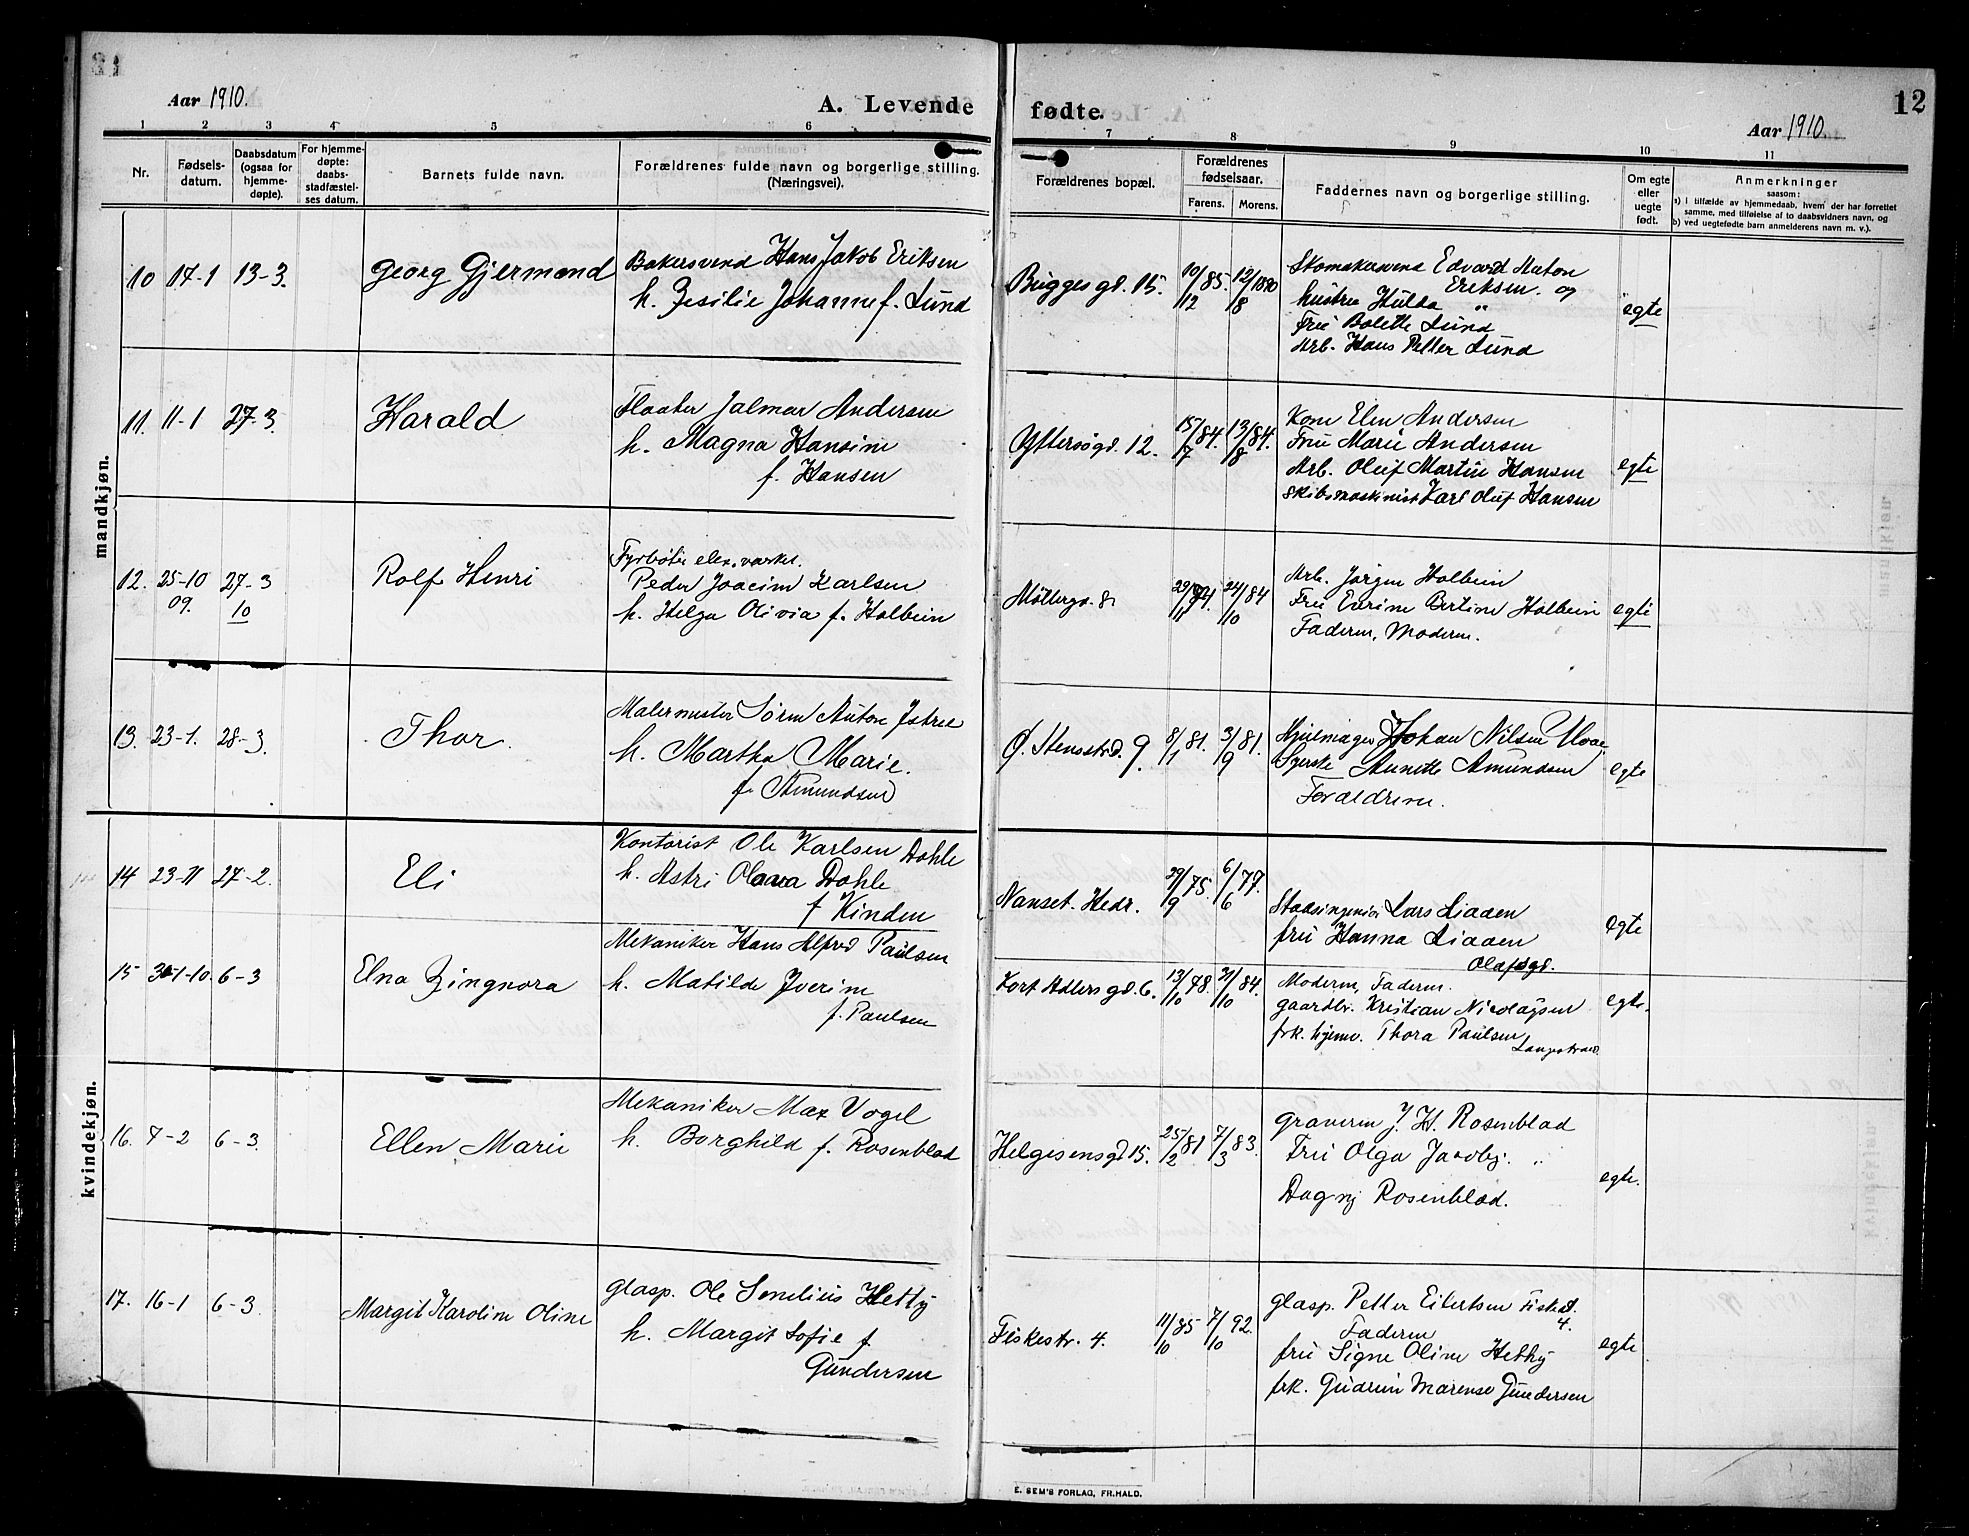 Aar 1910.
A. Levende fødte.
12
Aar 1910.
1 2 3 4 5 6 7 8 9 10 11
Nr.
Fødsels-
datum.
Daabsdatum
(ogsaa for
hjemme-
døpte).
For hjemme-
døpte:
daabs-
stadfæstel-
ses datum.
Barnets fulde navn.
Forældrenes fulde navn og borgerlige stilling.
(Næringsvei).
Forældrenes bopæl.
Forældrenes
fødselsaar.
Farens. Morens.
Faddernes navn og borgerlige stilling.
Om egte
eller
uegte
født.
Anmerkninger
saasom:
a) i tilfælde av hjemmedaab, hvem der har forrettet
samme, med tilføielse af to daabsvidners navn, og
b) ved uegtefødte barn anmelderens navn m. v.).
mandkjøn.
10 17-1 13-3.
Georg Gjermond
Bakersvend Hans Jakob Eriksen
h. Zesilie Johanne f. Lund
Bruggesgd. 15.
19/12 85. 12/8 1890
Skomakersvend Edvard Anton
Eriksen. og
hustru Hulda "
Fru Bolette Lund
Arb. Hans Petter Lund
egte
11. 11-1 27-3.
Harald
Fløater Jalmar Andersen
h. Magna Hansine
f. Hansen
Yttersøgd. 12.
15/7 84. 13/8 84.
Kone Elen Andersen
Fru Marie Andersen
Arb. Oluf Martin Hansen
Skibsmaskinist Karl Oluf Hansen
egte
12. 25-10 27-3
09. 10
Rolf Henri
Fyrbøter elex. værket.
Peder Joacim Karlsen
h. Helga Olivia f. Holbein
Møllergd. 8
24/10 84
Arb. Jørgen Holbein
Fru Evrine Bertine Holbein
Faderen, Moderen.
egte
13. 23-1. 28-3.
Thor.
Malermester Søren Anton Istree
h. Martha Marie.
f. Amundsen
Ø. Stensstrd. 9.
8/1 81. 3/9 81.
Hjulmager Johan Nilsen Moae
Syerske Anette Amundsen
Forældrene.
egte
kvindekjøn.
14 23-11 27-2.
Eli
Kontorist Ole Karlsen Dohle
h. Astri Olava Dohle
f Kinden
Nanset. Hedr.
29/9 75. 6/6 77.
Stadsingeniør Lars Liaaen
fru Hanna Liaaen
Olafsgd.
egte
15 31-10 6-3
Elna Zingnora
Mekaniker Hans Alfred Paulsen
h. Matilde Iverine
f. Paulsen
Kort Adlersgd. 6.
13/10 78. 21/10 84.
Moderen, Faderen.
gaardbr. Kristian Nicolaysen
frk. hjemv. Thora Paulsen
Langestrand.
egte.
16. 7-2 6-3.
Ellen Marie
Mekaniker Max Vogel
h. Borghild f. Rosenblad
Helgesensgd 15.
25/2 81 7/3 83.
graveren J. H. Rosenblad
Fru Olga Jacoby. "
Dagny Rosenblad.
egte.
17. 16-1 6-3.
Margit Karoline Oline
glasp. Ole Senelius Hetty
h. Margit Sofie f
Gundersen
Fiskestr. 4.
11/10 85 7/10 92.
glasp. Petter Eilertsen Fiskest.
4.
Faderen
fru Signe Oline Hetty
frk. Gudrun Marense Gundersen
egte
E. SEM'S FORLAG, FR.HALD.